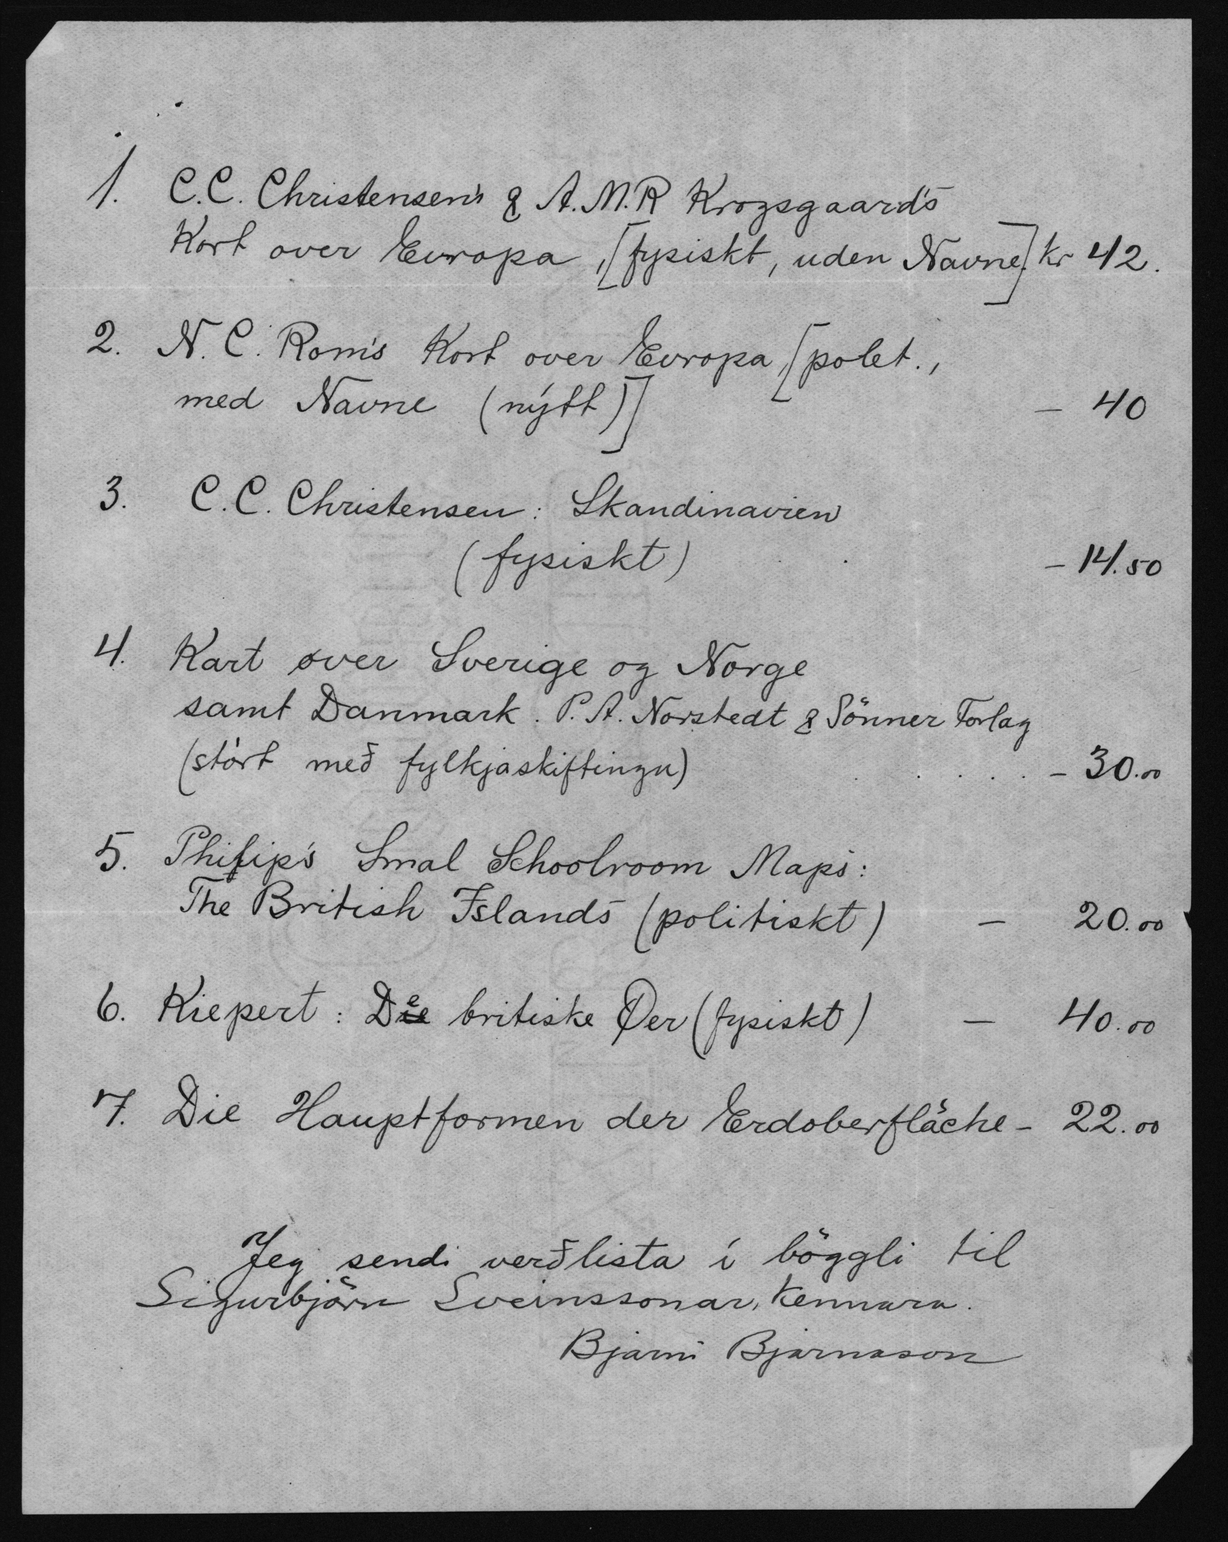 1. C.C. Christensen's & A.M.R Krogsgaard's
Kort over Evropa, [fysiskt, uden Navne.] kr 42.
2. N.C. Rom's Kort over Evropa, [polet.,
med Navne (nýtt)] – 40
3. C.C. Christensen: Skandinavien
(fysiskt) – 14.50
4. Kart over Sverige og Norge
samt Danmark. P.A. Norstedt & Sönner Forlag
(stórt með fylkjaskiftingu) . . . . – 30.00
5. Philip's Smal Schoolroom Maps:
The British Islands (politiskt) – 20.00
6. Kiepert: De britiske Øer (fysiskt) – 40.00
7. Die Hauptformen der Erdoberfläche – 22.00
Jeg sendi verðlista í böggli til
Sigurbjörn Sveinssonar, kennara.
Bjarni Bjarnason